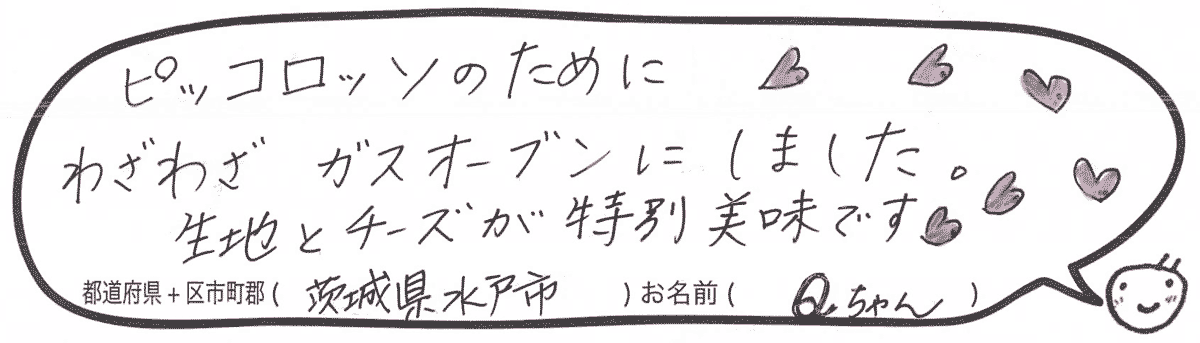 ピッコロッソのために
わざわざ ガスオーブンにしました。
生地とチーズが特別美味です
都道府県+区市町郡(茨城県水戸市)お名前(Qちゃん)